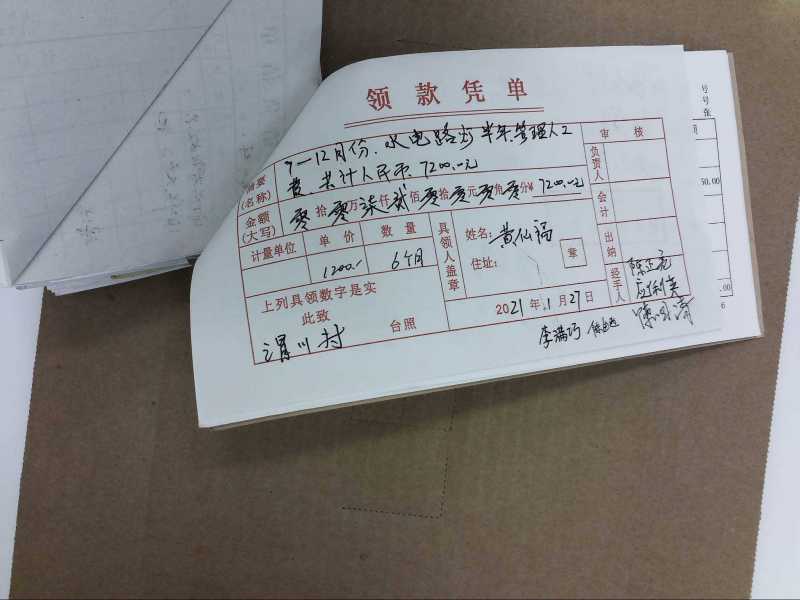 领款凭单
摘要(名称) 7—12月份.水电路灯半年管理人工
费.共计人民币.7200.—元
金额(大写) 零拾零万柒仟贰佰零拾零元零角零分¥7200.—元
计量单位 单价 数量
1200.- 6个月
上列具领数字是实
此致
渭川村 台照
具领人盖章
姓名:黄仙福
住址:
章
2021年.1月27日
审核
负责人
会计
出纳
经手人
李满巧
号
号
张
50.00
.00